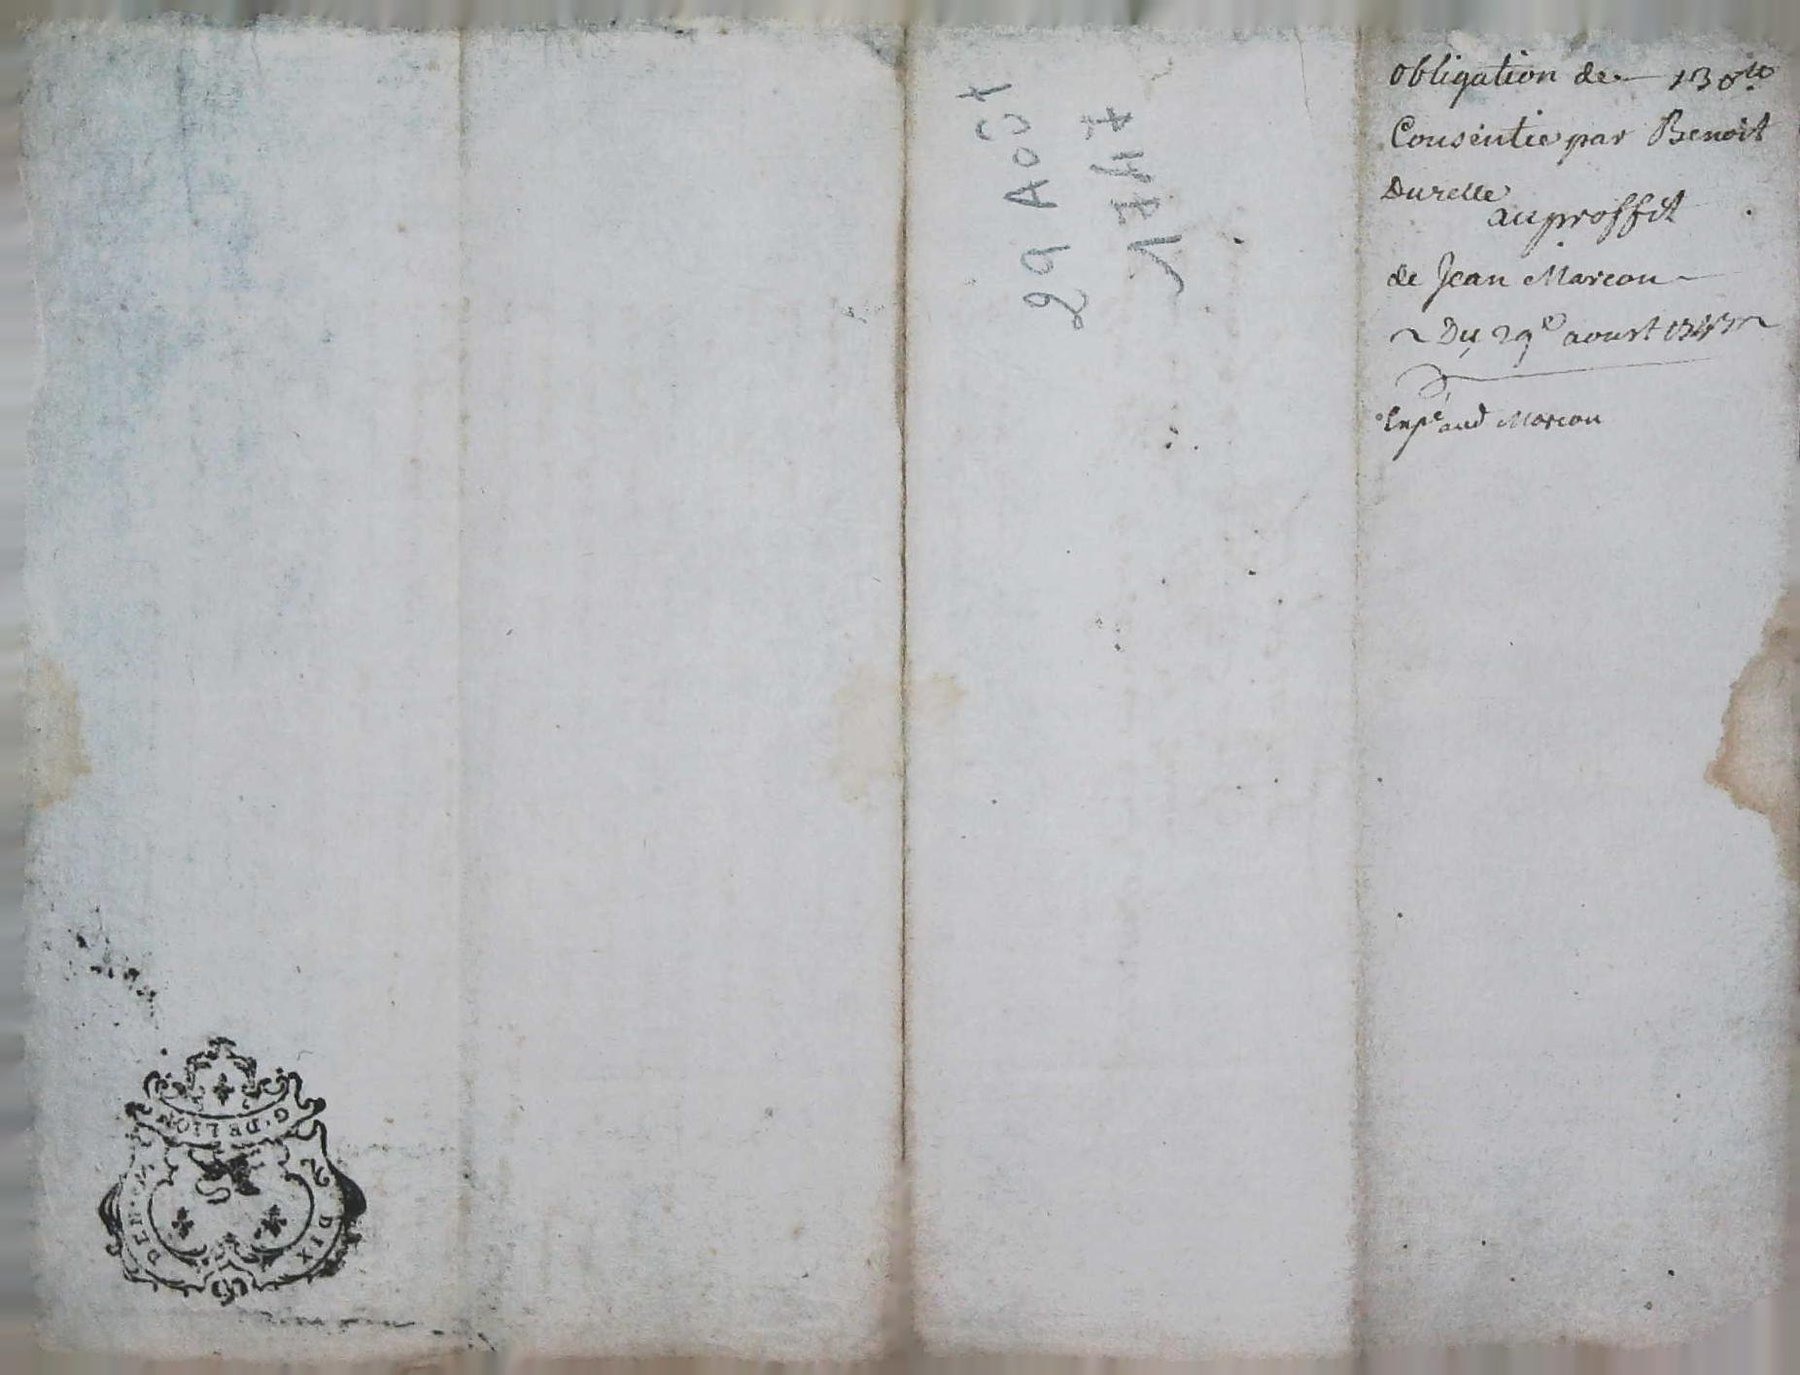 obligation de 130tt
Consentie par Benoit
Durelle
au proffit
de Jean Marcou
Du 29e aoust 1747
Expe aud Marcou
29 AoSt
1747
G. DE LION
DIX DEN.